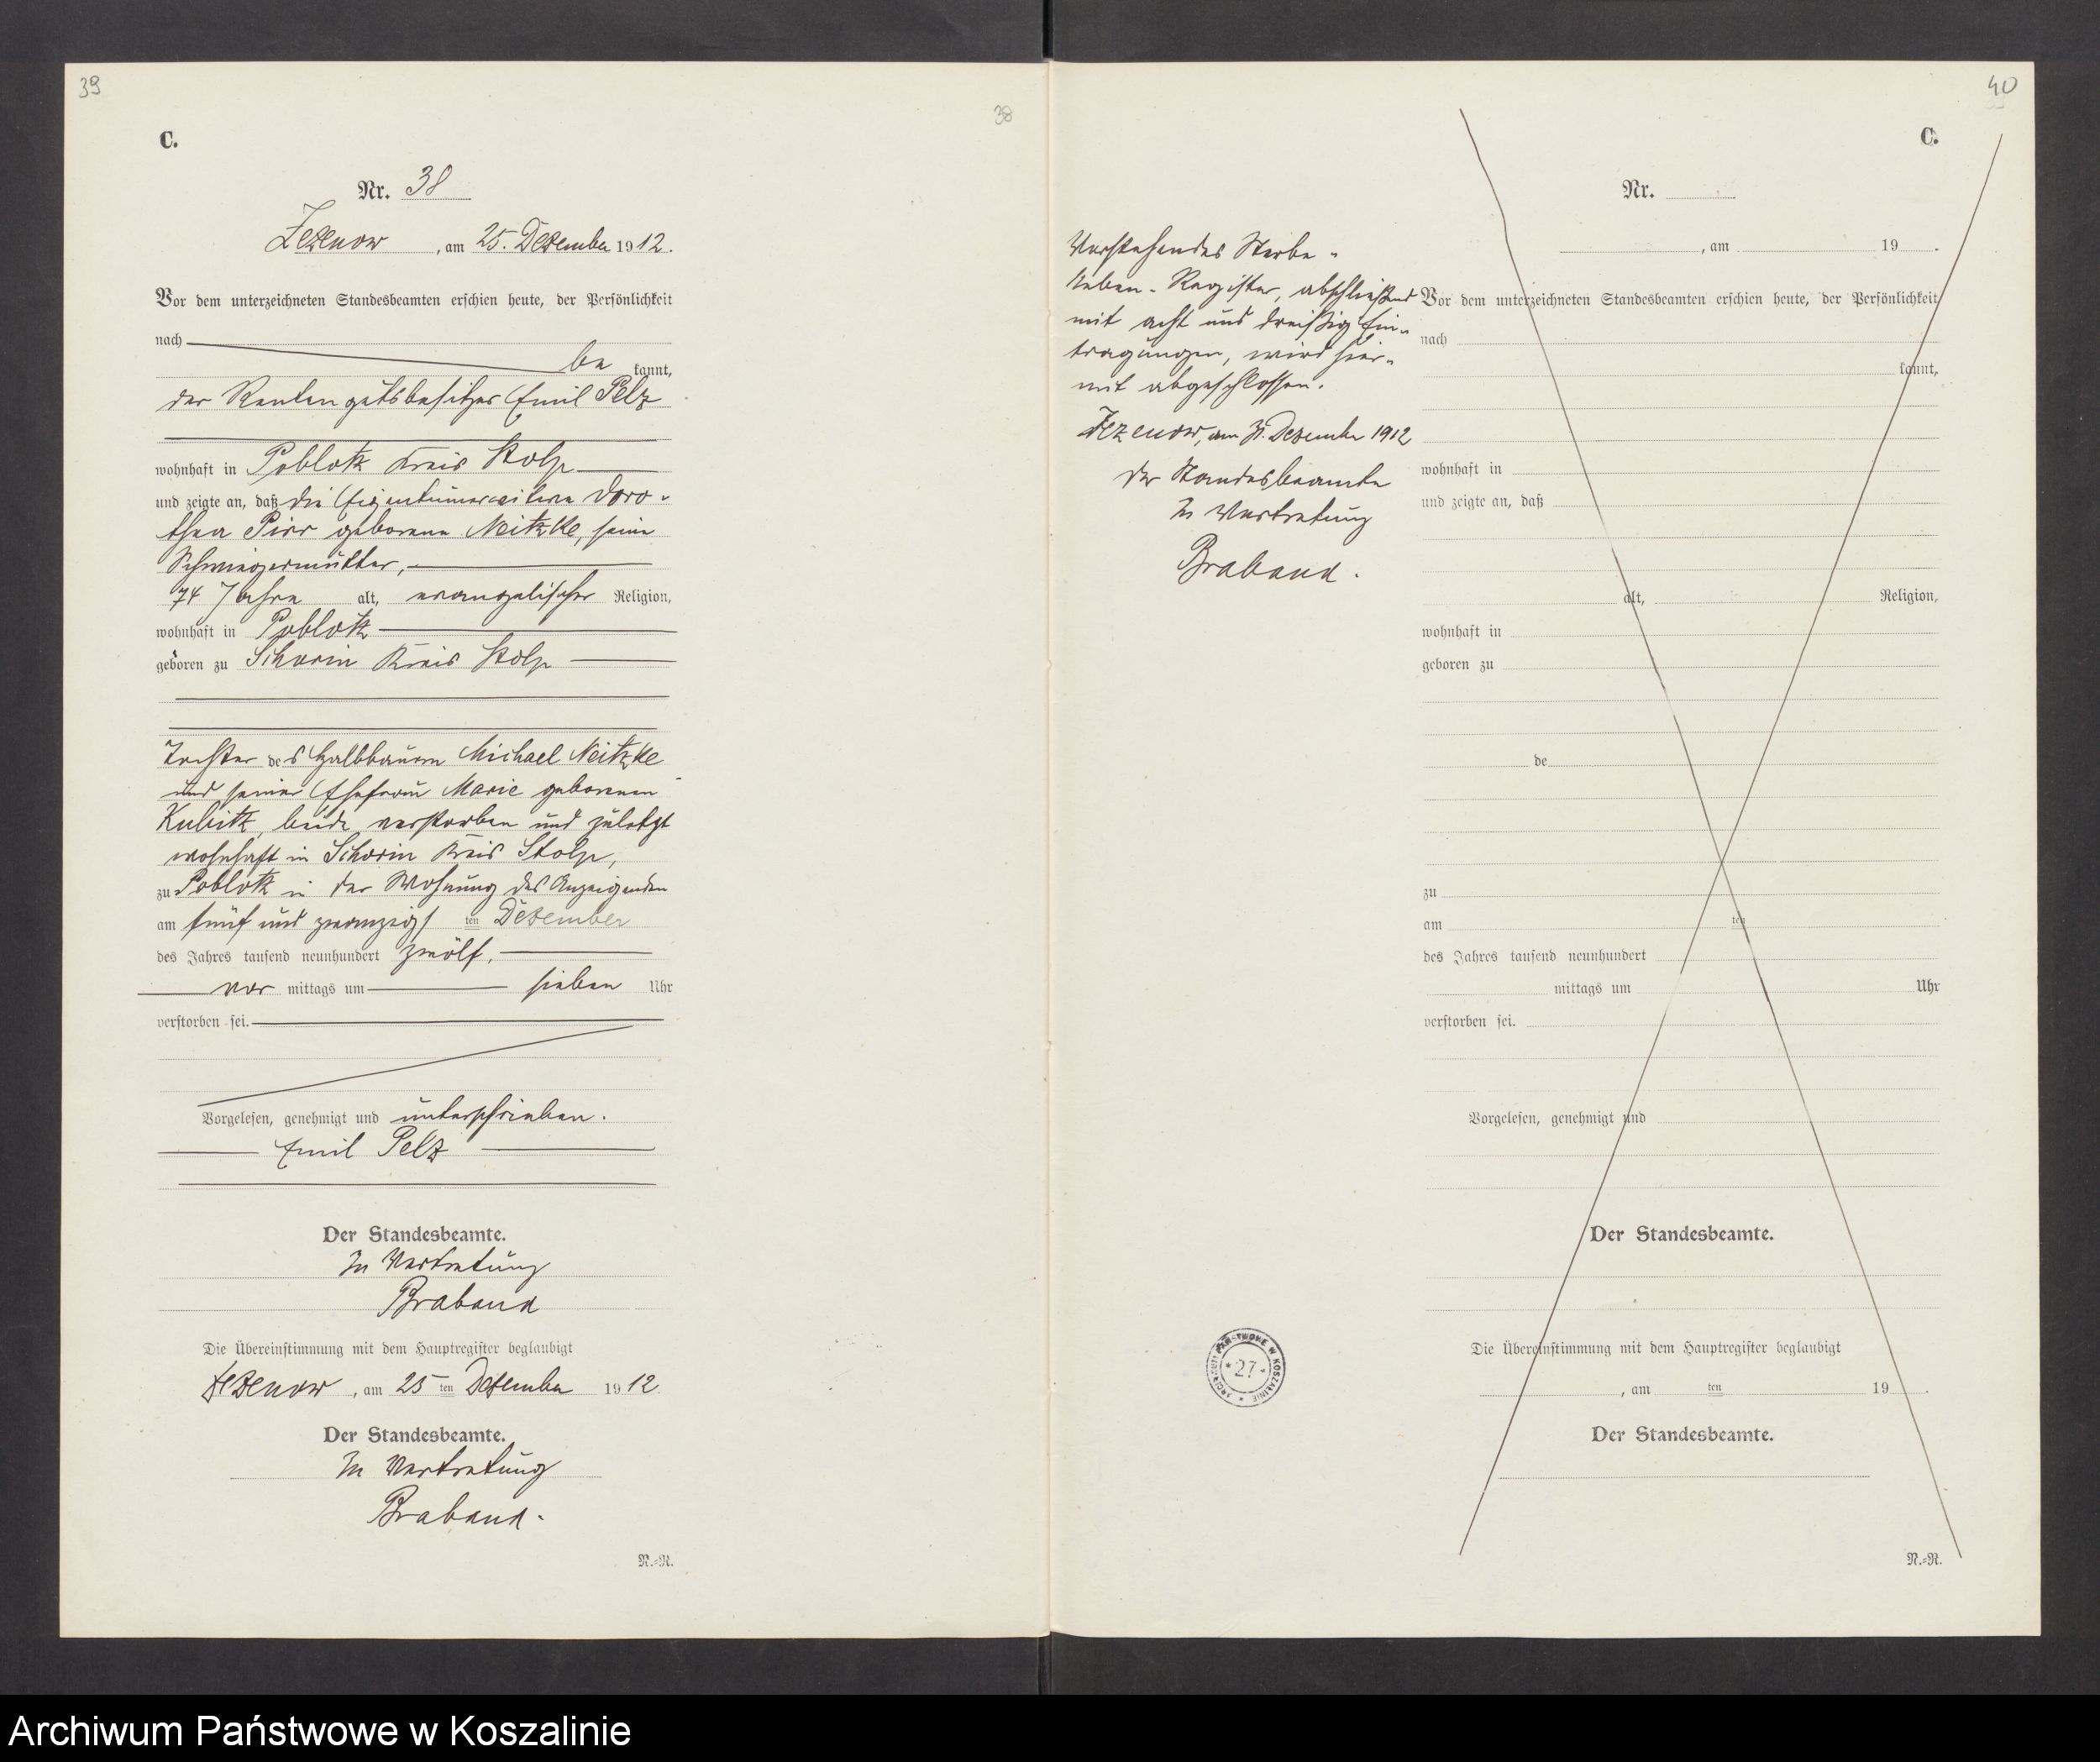 39
38
C.
Nr. 38
Zezenow, am 25. Dezember 1912.
Vor dem unterzeichneten Standesbeamten erschien heute, der Persönlichkeit
nach
be kannt,
der Rentengutsbesitzer Emil Pelz
wohnhaft in Poblotz Kreis Stolp
und zeigte an, daß die Eigentümerwitwe Doro-
thea Pirr geborene Neitzke, seine
Schwiegermutter,
74 Jahre alt, evangelischer Religion,
wohnhaft in Poblotz
geboren zu Schorin Kreis Stolp
Tochter des Halbbauern Michael Neitzke
und seiner Ehefrau Marie geborenen
Kubitz, beide verstorben und zuletzt
wohnhaft in Schorin Kreis Stolp,
zu Poblotz in der Wohnung des Anzeigenden
am fünf und zwanzigsten Dezember
des Jahres tausend neunhundert zwölf,
vor mittags um sieben Uhr
verstorben sei.
Vorgelesen, genehmigt und unterschrieben.
Emil Pelz
Der Standesbeamte.
In Vertretung
Braband
Die Übereinstimmung mit dem Hauptregister beglaubigt
Zezenow, am 25 ten Dezember 1912.
Der Standesbeamte.
In Vertretung
Braband.
N.-R.
40
C.
Vorstehendes Sterbe-
Neben-Register, abschließend
mit acht und dreißig Ein-
tragungen, wird hier-
mit abgeschlossen.
Zezenow, am 31. Dezember 1912
Der Standesbeamte
In Vertretung
Braband.
Nr.
, am 19 .
Vor dem unterzeichneten Standesbeamten erschien heute, der Persönlichkeit
nach
kannt,
wohnhaft in
und zeigte an, daß
alt, Religion,
wohnhaft in
geboren zu
de
zu
am ten
des Jahres tausend neunhundert
mittags um Uhr
verstorben sei.
Vorgelesen, genehmigt und
Der Standesbeamte.
Die Übereinstimmung mit dem Hauptregister beglaubigt
, am ten 19 .
Der Standesbeamte.
N.-R.
ARCHIWUM PAŃSTWOWE W KOSZALINIE
* 27 *
Archiwum Państwowe w Koszalinie